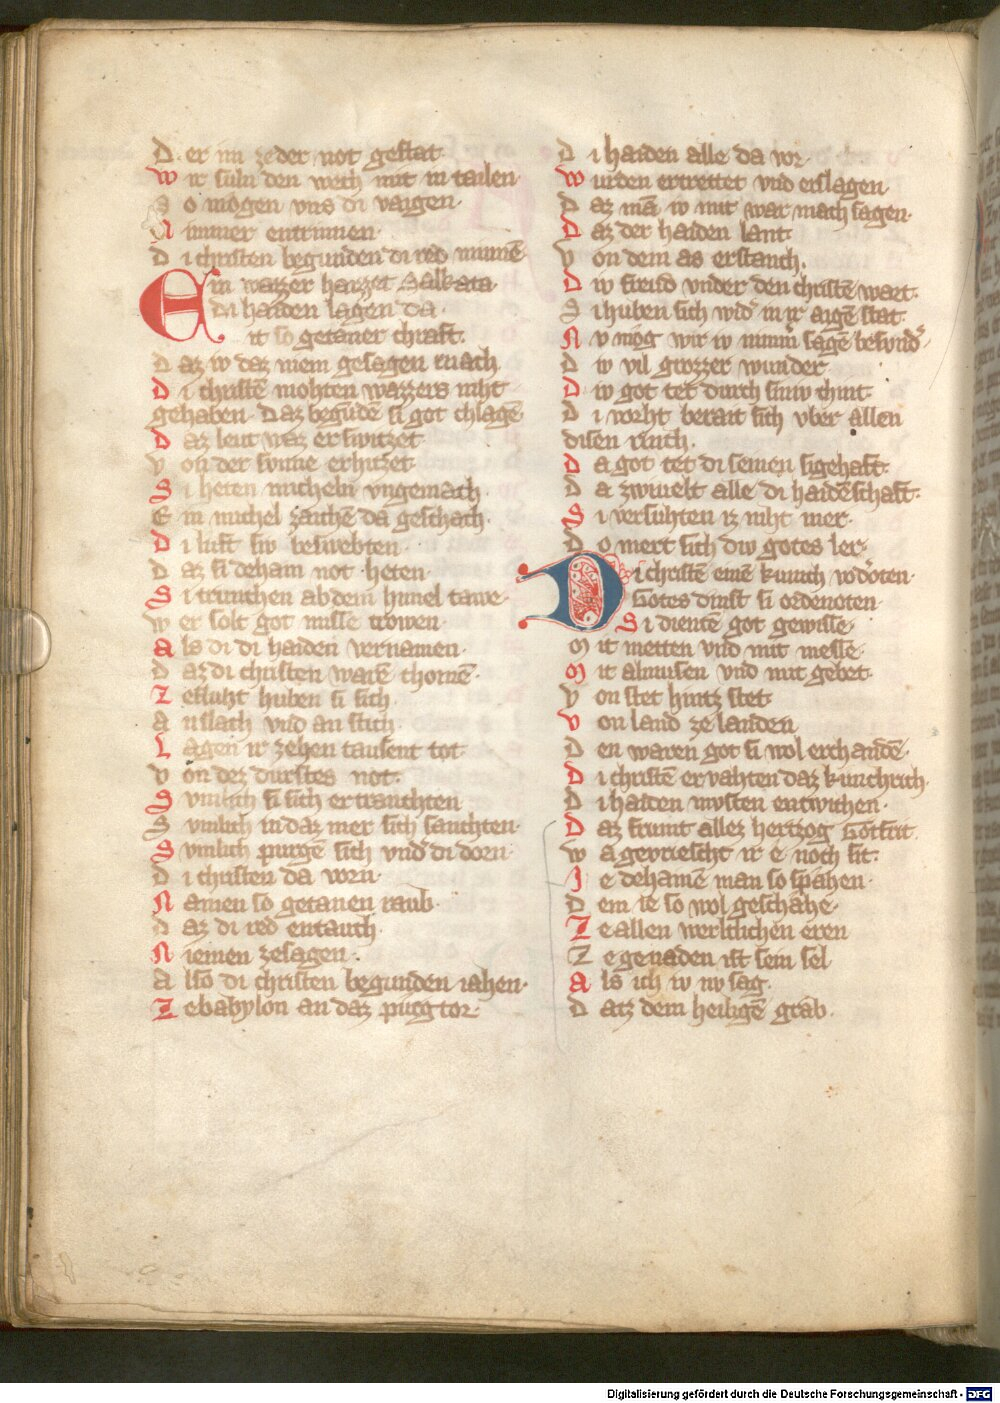 D er im ze der not gestat
W ir suln den wech mit in tailen
S o mógen vns di vaigen
N immer entrinnen
D i christen begunden di red minnē
Ein wazzer haizzet Salkata
di haiden lagen da
it so getaner chraft.
D az iv daz niem gesagen mach
D i christē mohten wazzers niht
gehaben. Daz begūdē si got chlagē
D az leut waz erswitzet
V on der svnne erhitzet
S i heten micheln vngemach
E in michel zaichē da geschach
D i luft siv beswebten
D az si deham not heten
S i trunchen ab dem himel tawe
W er solt got missetrowen
A ls di di haiden vernamen
D az di christen warē chomē
Z e fluht huben si sich
A n slach vnd an stich
L agen ir zehen tausent tot
V on dez durstes not.
S vmlich si sich ertranchten
S vmlich in daz mer sich sanchten
S vmlich purgē sich vnd' di dorn
D i christen da vorn
N amen so getanen raub
D az di red entauch
N iemen ze sagen.
A lso di christen begunden iahen
Z e babylon an daz purgtor
D i haiden alle da vor
W urden ertrettet vnd erslagen
D az mā iv mit war mach sagen
D az der haiden lant
V on dem as erstanch.
D iv freud vnder den christē wart
S i huben sich wid' in ir aigē stat
N v mog wir iv nimm' sagē besund'
D iv vil grozzer wunder
D iv got tet durch siniv chint
D i vorht berait sich vber allen
disen rinch.
D a got tet di seinen sigehaft
D a zwiuelt alle di haidēschaft
S i versuhten iz niht mer
D o mert sich div gotes ler
Di christē einē kunich vodoten
Gotes dinst si ordenoten
S i dientē got gewisse
M it metten vnd mit messe
M it almusen vnd mit gebet
V on stet hintz stet
V on land ze landen
D en waren got si wol erchandē
D i christē ervahten daz kunchrich
D i haiden mvsten entwichen
D az frumt allez hertzog Gotfrit
W a gevriescht ir e noch sit
I e dehainē man so spahen
D em ie so wol geschahe
Z e allen werltlichen eren
Z e genaden ist sein sel
A ls ich iv nv sag
D atz dem heiligē grab
Digitalisierung gefördert durch die Deutsche Forschungsgemeinschaft - DFG